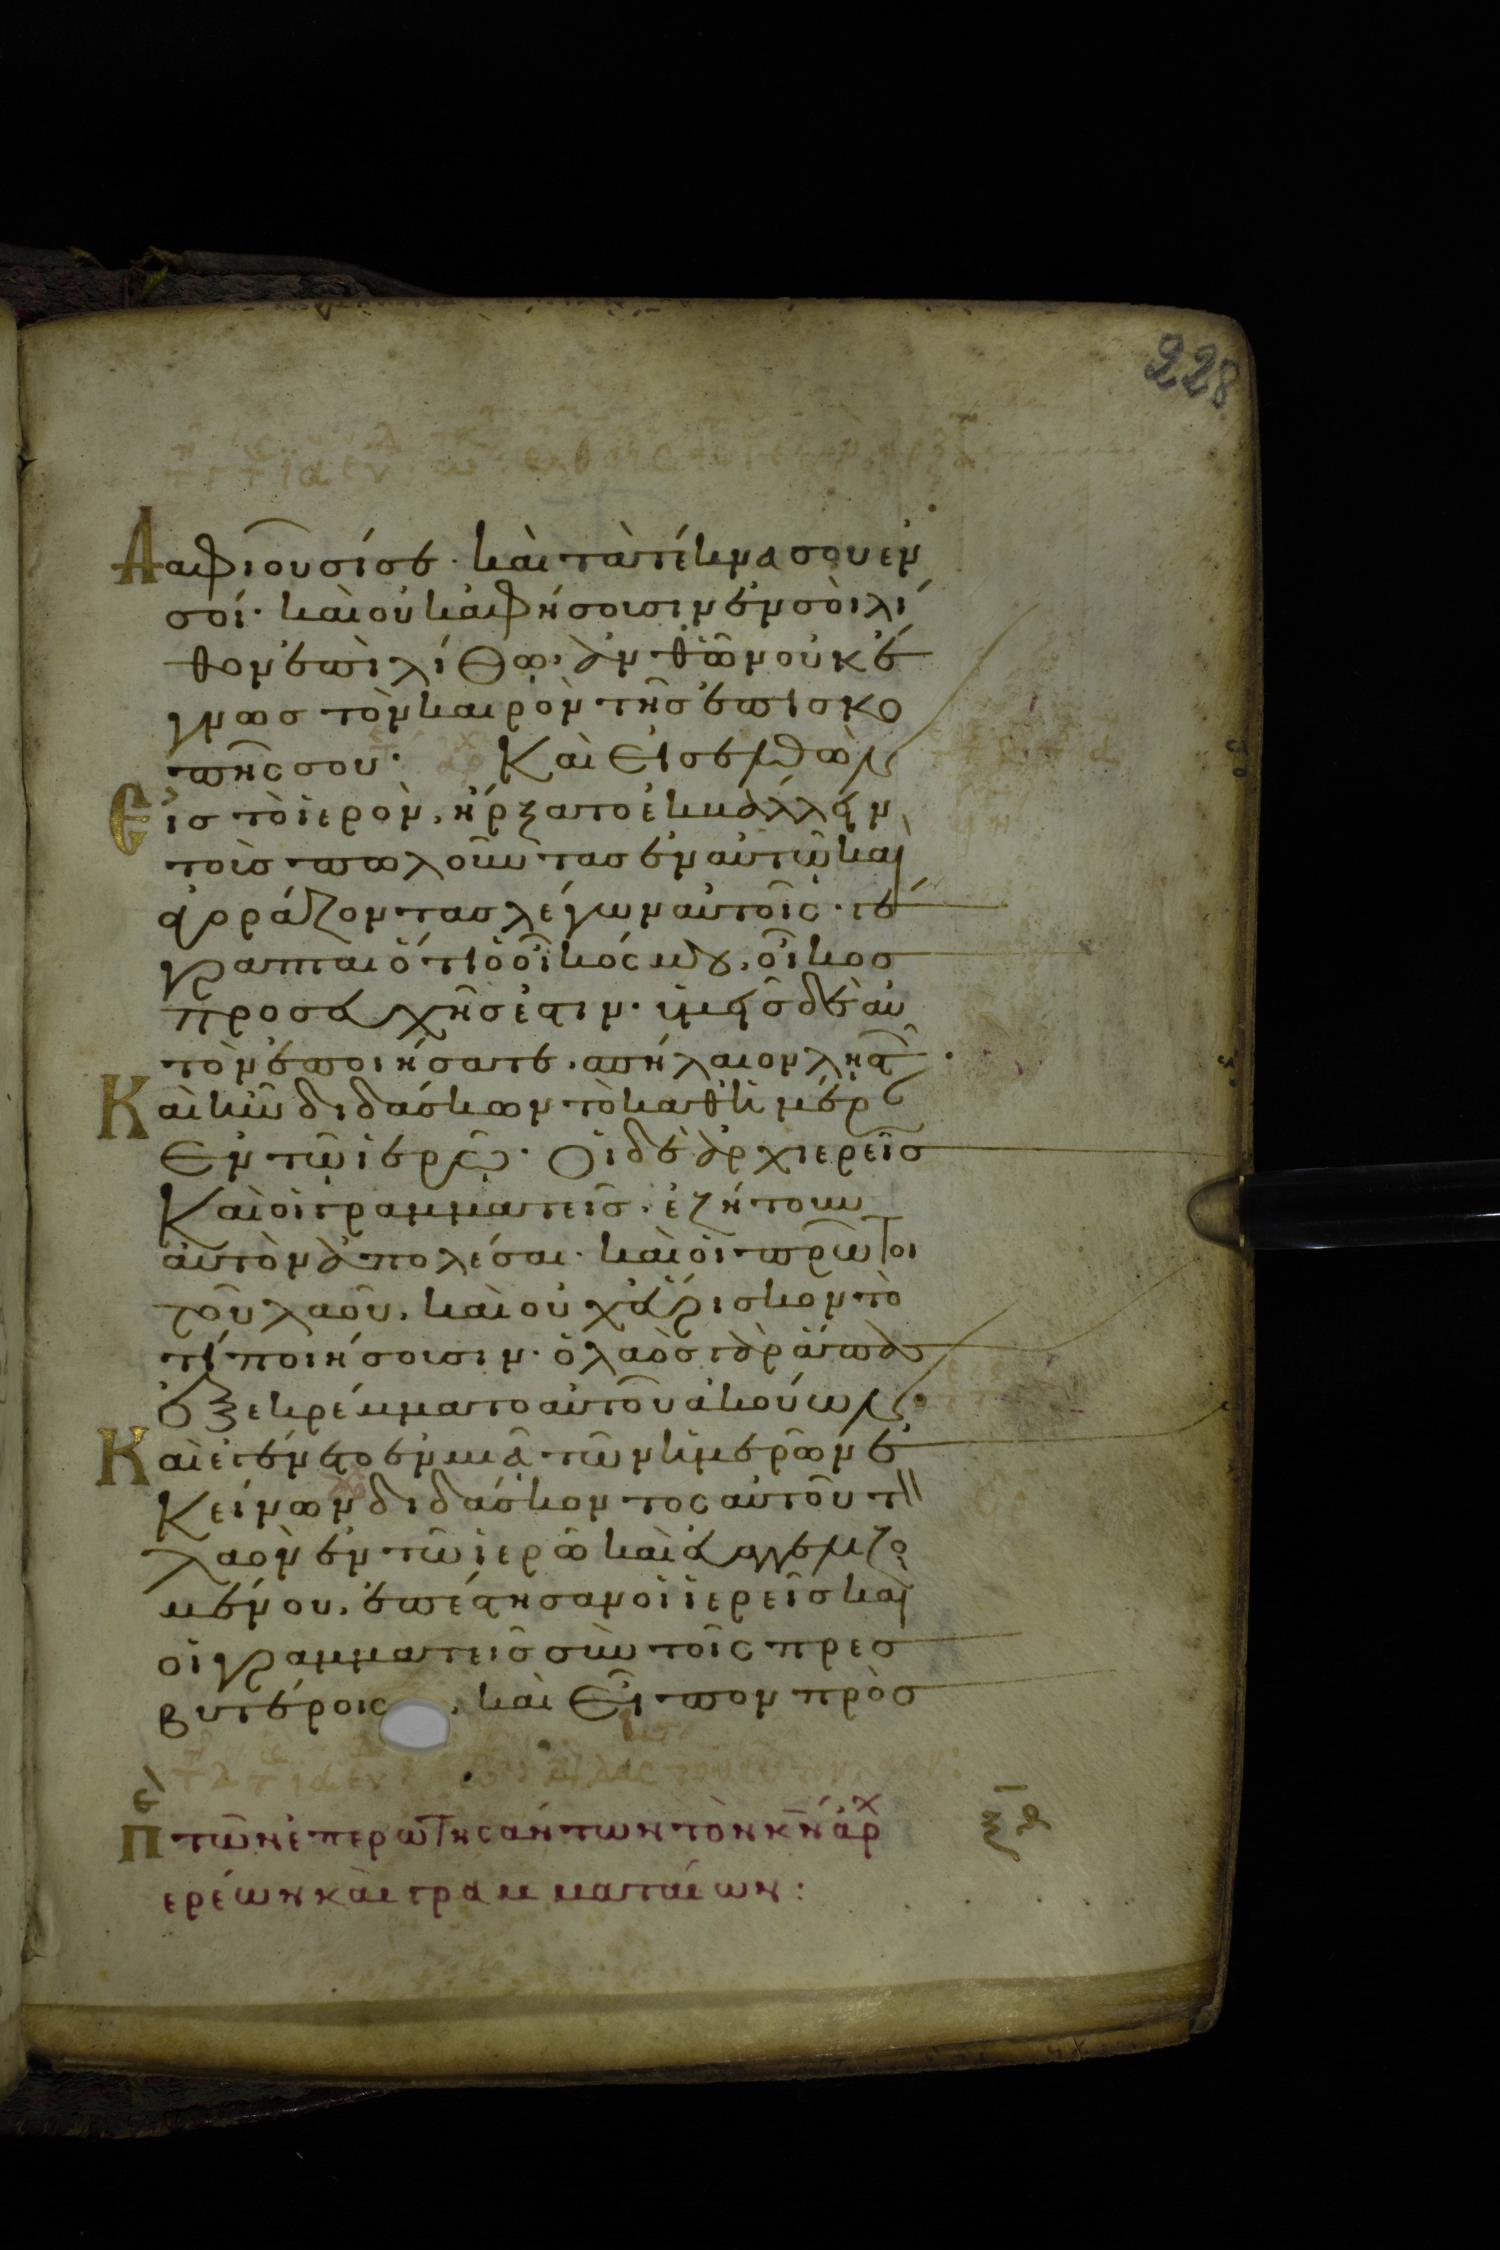 228
Δαφιοῦσίσε· καὶ τὰ τέκνα σου ἐν
σοί· καὶ οὐκ ἀφήσουσιν ἐν σοὶ λί
θον ἐπὶ λίθω, ἀνθ ὧν οὐκ ἔ
γνωσ τὸν καιρὸν τῆσ ἐπισκο
πῆς σου· Καὶ εἰσελθὼν
εἰσ τὸ ἱερὸν, ἤρξατο ἐκβάλλειν
τοὺσ πωλοῦντασ ἐν αὐτῶ καὶ
ἀγοράζοντασ λέγων αὐτοῖς· γέ
γραπται ὅτι ὁ οἶκός μου, οἶκοσ
προσευχῆσ ἐστιν· ὑμεῖσ δὲ αὐ
τὸν ἐποιήσατε, σπήλαιον ληστ
Καὶ ἦν διδάσκων τὸ καθ ἡμέρ
ἐν τῶ ἱερῶ· οἱ δὲ ἀρχιερεῖσ
καὶ οἱ γραμματεῖσ, ἐζήτουν
αὐτὸν ἀπολέσαι· καὶ οἱ πρῶτοι
τοῦ λαοῦ, καὶ οὐχ εὕρισκον τὸ
τί ποιήσουσιν· ὁ λαὸσ γὰρ ἅπασ
ἐξεκρέματο αὐτοῦ ἀκούων·
Καὶ ἐγένετο ἐν μιᾶ τῶν ἡμερῶν ἐ
κείνων διδάσκοντος αὐτοῦ τ
λαὸν ἐν τῶ ἱερῶ καὶ εὐαγγελιζο
μένου, ἐπέστησαν οἱ ἱερεῖσ καὶ
οἱ γραμματεῖσ σὺν τοῖς πρεσ
βυτέροις, καὶ εἶπον πρὸσ
Πε τῶν ἐπερωτησάντων τὸν κν ἀρχ
ερέων καὶ γραμματαίων: